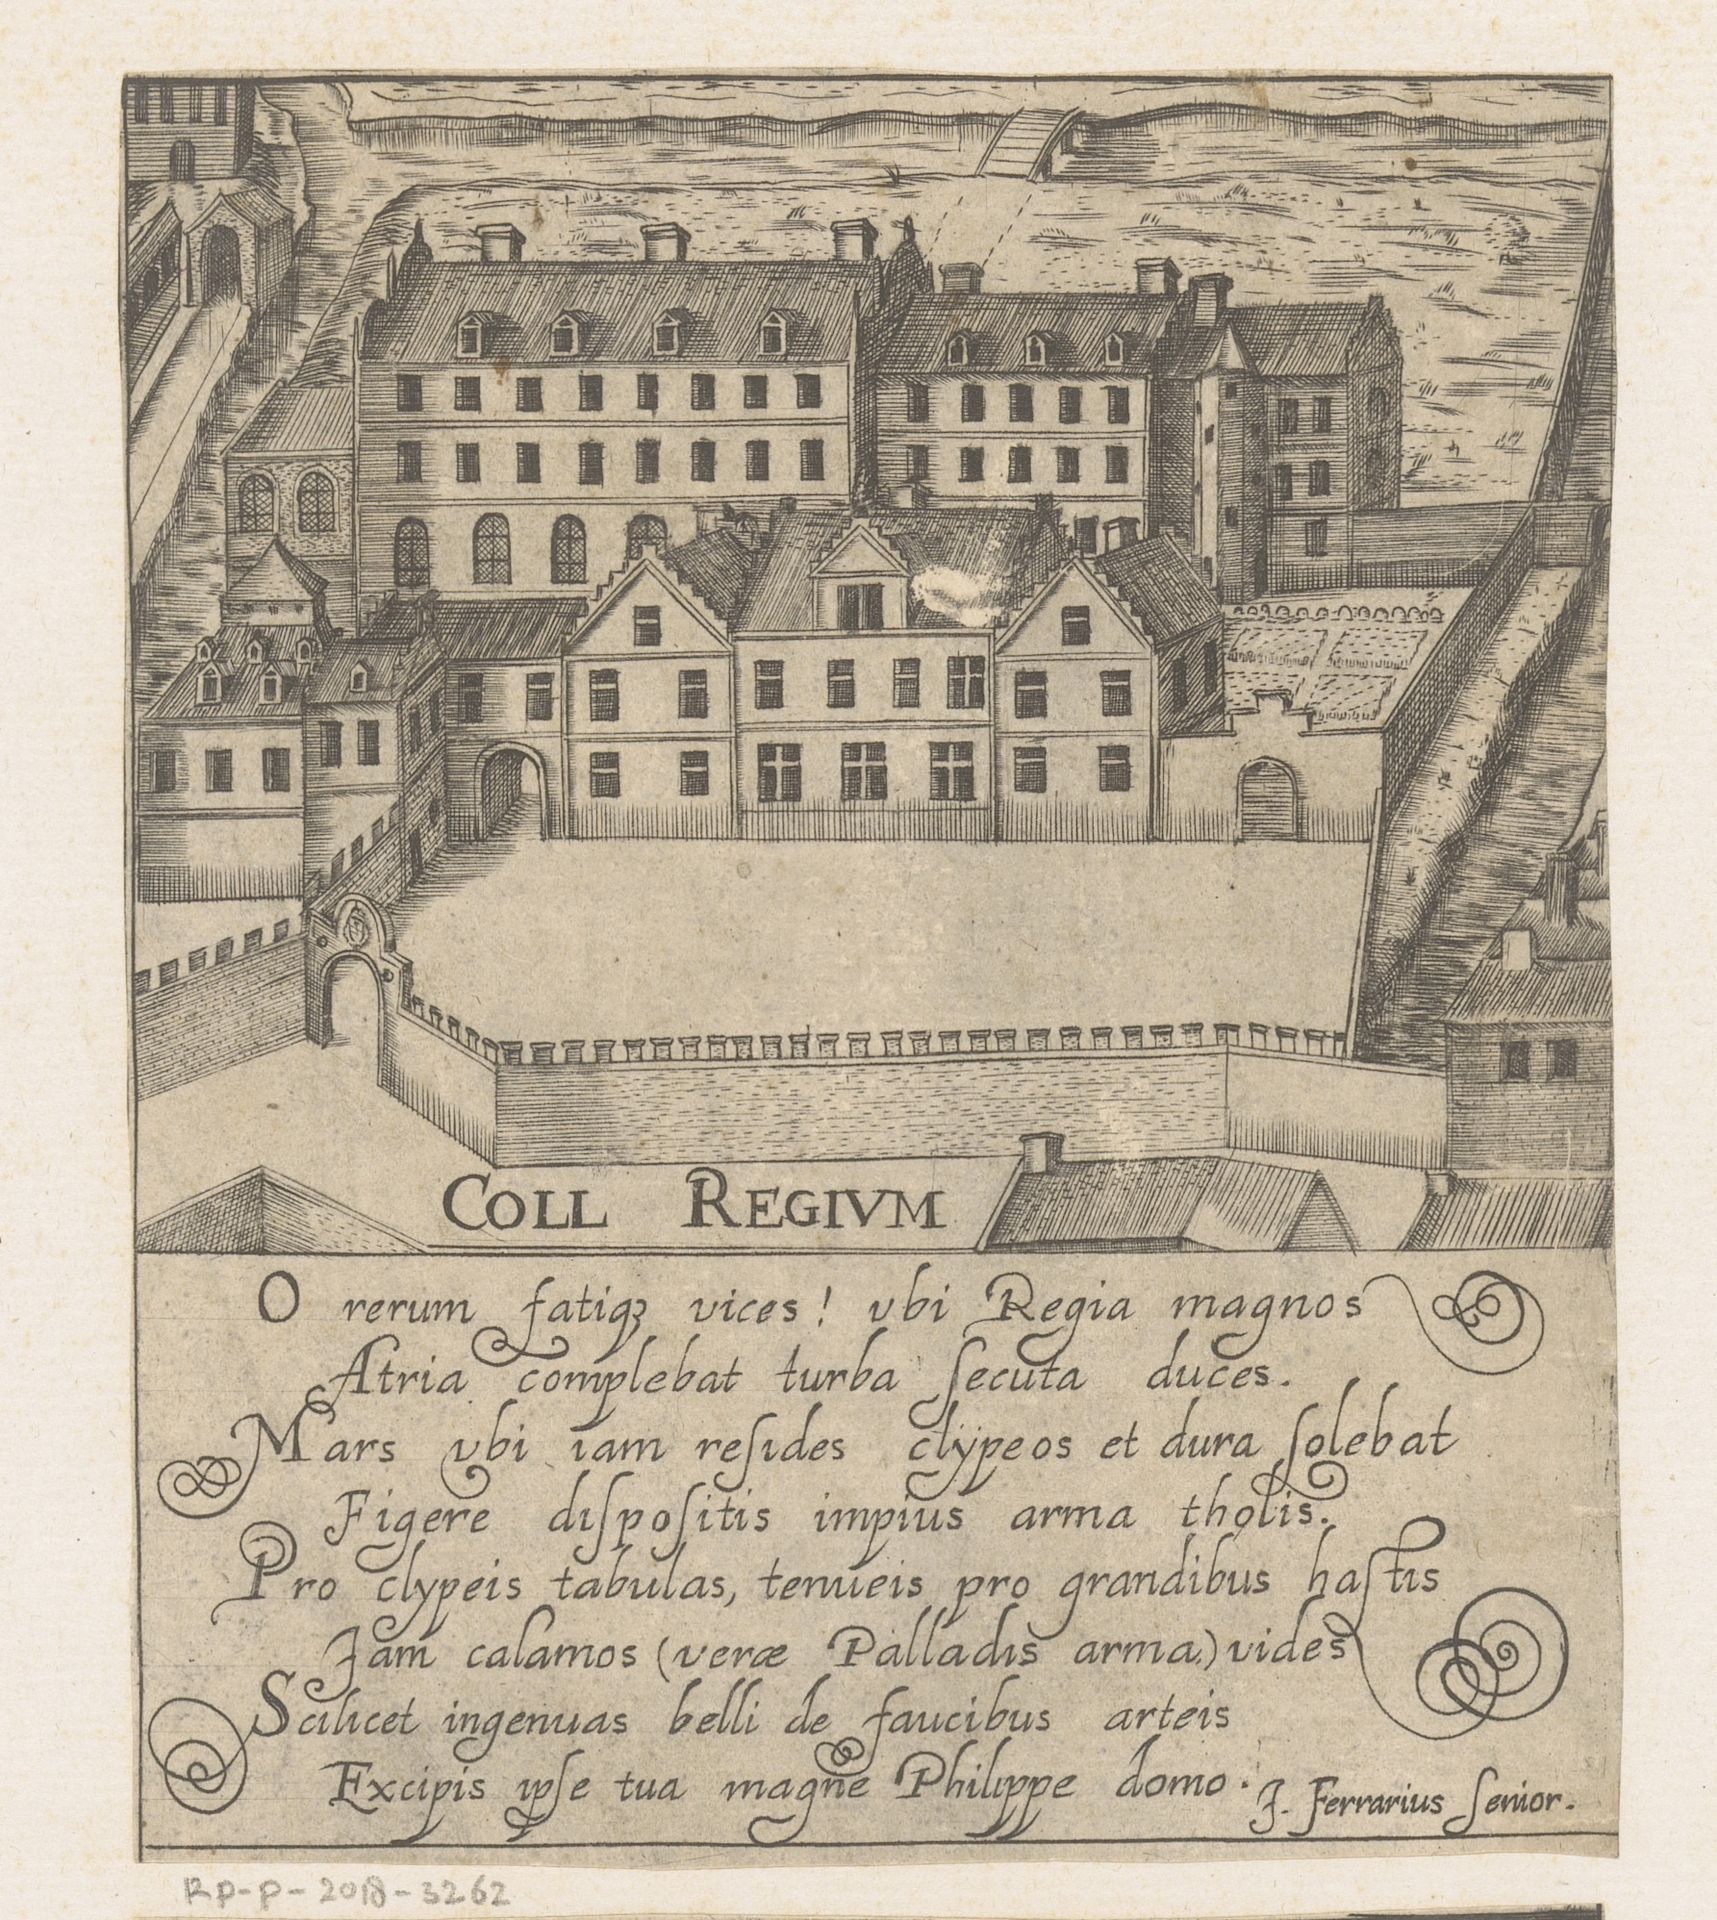 COLL REGIVM
O rerum fatiqꝫ vices! vbi Regia magnos
Atria complebat turba ſecuta duces.
Mars vbi iam reſides clÿpeos et dura ſolebat
Figere diſpoſitis impius arma tholis.
Pro clypeis tabulas, tenueis pro grandibus haſtis
Jam calamos (veræ Palladis arma,) vides
Scilicet ingenuas belli de faucibus arteis
Excipis ipſe tua magne Philippe domo.
J. Ferrarius ſenior.
RP-P-2018-3262